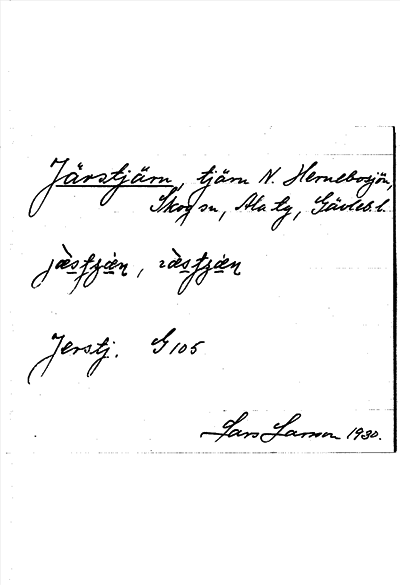 Järstjärn, tjärn N. Hernebosjön,
Skog sn, Ala tg, Gävleb. l.
jæ̀stjæn, ræ̀stjæn
Jerstj. G 105
Lars Larsson 1930.